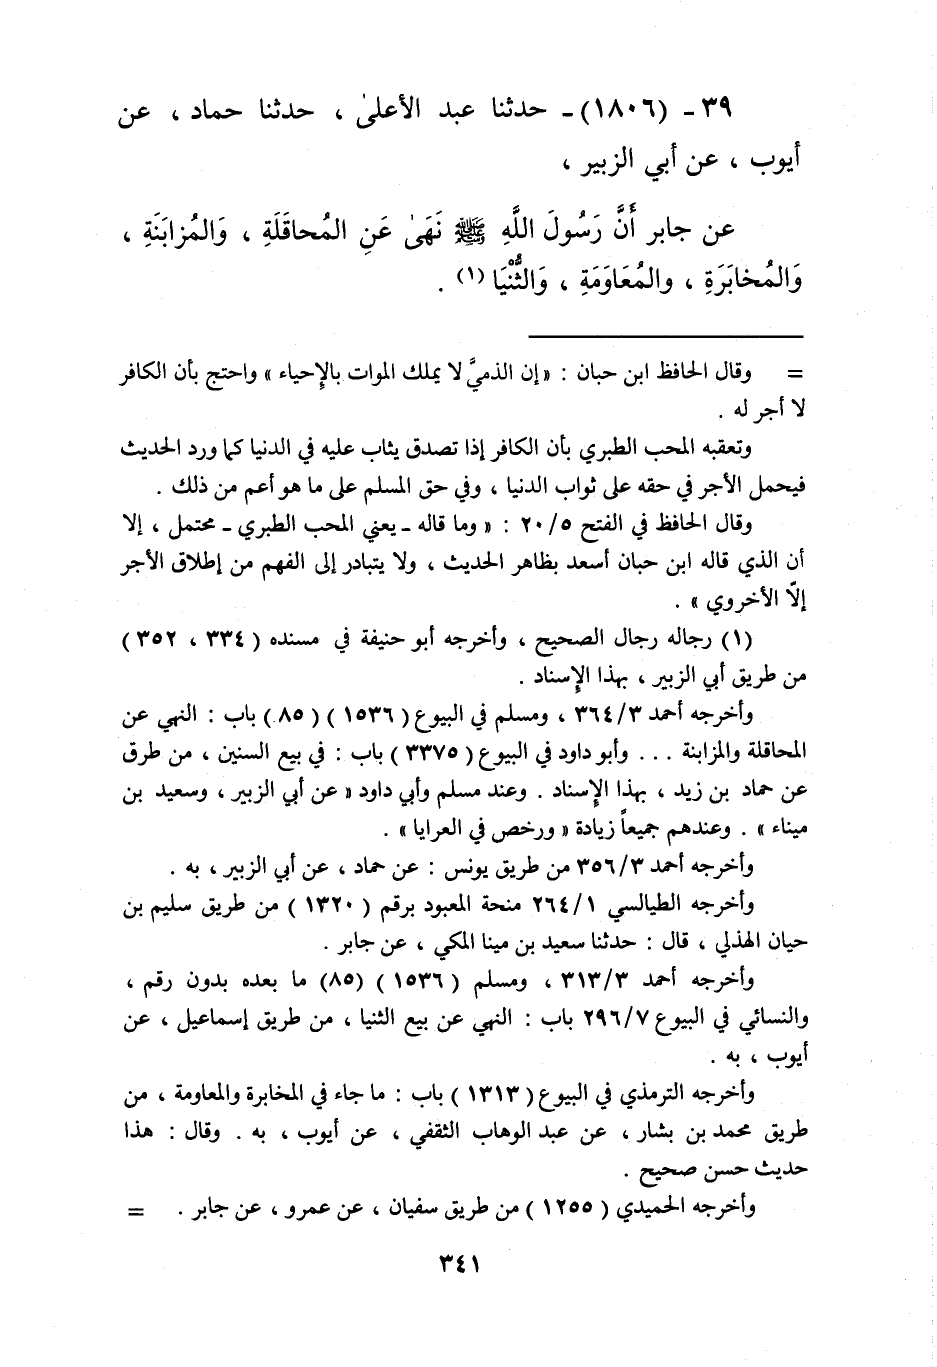 ٣٩ - (١٨٠٦) - حدثنا عبد الأعلىٰ ، حدثنا حماد ، عن
أيوب ، عن أبي الزبير ،
عن جابر أَنَّ رَسُولَ اللَّهِ ﷺ نَهَىٰ عَنِ المُحاقَلَةِ ، وَالمُزابَنَةِ ،
وَالمُخابَرَةِ ، والمُعَاوَمَةِ ، وَالثُّنْيَا (١) .
= وقال الحافظ ابن حبان : « إن الذميَّ لا يملك الموات بالإحياء » واحتج بأن الكافر
لا أجر له .
وتعقبه المحب الطبري بأن الكافر إذا تصدق يثاب عليه في الدنيا كما ورد الحديث
فيحمل الأجر في حقه على ثواب الدنيا ، وفي حق المسلم على ما هو أعم من ذلك .
وقال الحافظ في الفتح ٢٠/٥ : « وما قاله - يعني المحب الطبري - محتمل ، إلا
أن الذي قاله ابن حبان أسعد بظاهر الحديث ، ولا يتبادر إلى الفهم من إطلاق الأجر
إلّا الأخروي » .
(١) رجاله رجال الصحيح ، وأخرجه أبو حنيفة في مسنده ( ٣٣٤ ، ٣٥٢ )
من طريق أبي الزبير ، بهذا الإسناد .
وأخرجه أحمد ٣٦٤/٣ ، ومسلم في البيوع ( ١٥٣٦ ) ( ٨٥ ) باب : النهي عن
المحاقلة والمزابنة . . . وأبو داود في البيوع ( ٣٣٧٥ ) باب : في بيع السنين ، من طرق
عن حماد بن زيد ، بهذا الإسناد . وعند مسلم وأبي داود « عن أبي الزبير ، وسعيد بن
ميناء » . وعندهم جميعاً زيادة « ورخص في العرايا » .
وأخرجه أحمد ٣٥٦/٣ من طريق يونس : عن حماد ، عن أبي الزبير ، به .
وأخرجه الطيالسي ٢٦٤/١ منحة المعبود برقم ( ١٣٢٠ ) من طريق سليم بن
حيان الهذلي ، قال : حدثنا سعيد بن مينا المكي ، عن جابر .
وأخرجه أحمد ٣١٣/٣ ، ومسلم ( ١٥٣٦ ) (٨٥) ما بعده بدون رقم ،
والنسائي في البيوع ٢٩٦/٧ باب : النهي عن بيع الثنيا ، من طريق إسماعيل ، عن
أيوب ، به .
وأخرجه الترمذي في البيوع ( ١٣١٣ ) باب : ما جاء في المخابرة والمعاومة ، من
طريق محمد بن بشار ، عن عبد الوهاب الثقفي ، عن أيوب ، به . وقال : هذا
حديث حسن صحيح .
وأخرجه الحميدي ( ١٢٥٥ ) من طريق سفيان ، عن عمرو ، عن جابر . =
٣٤١